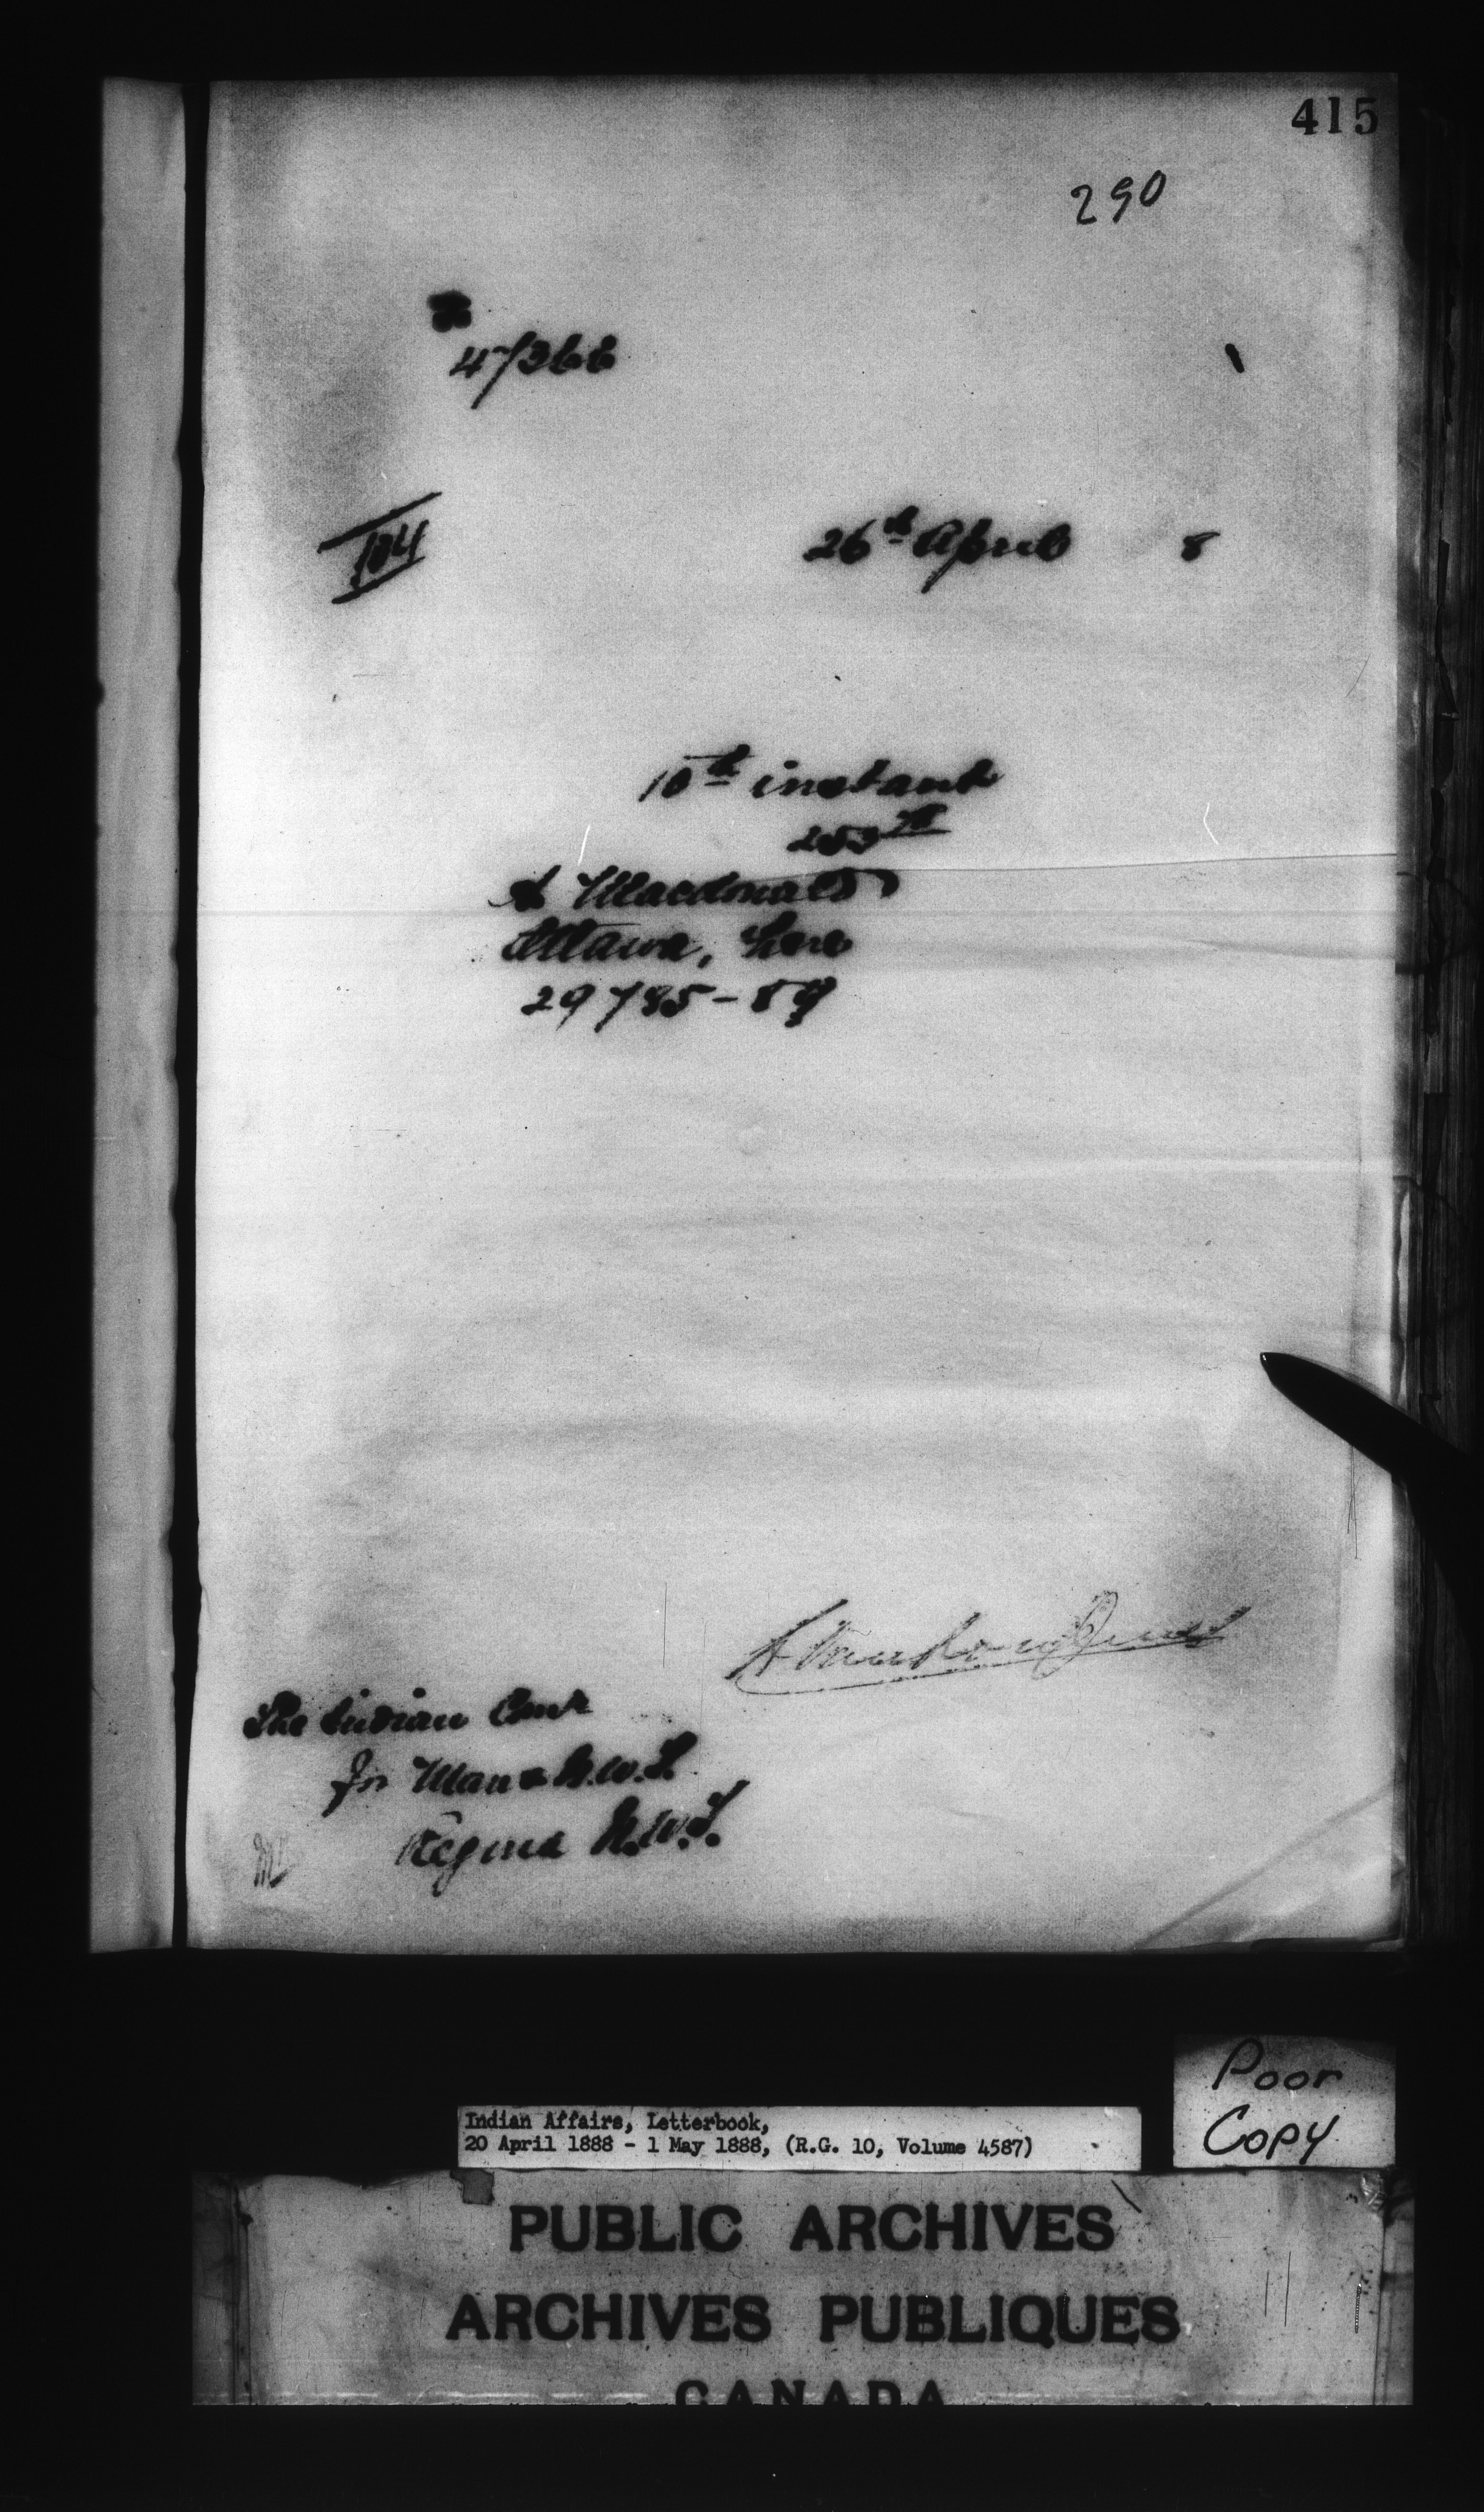 415
290
47366
104
26th April 8
10th instant
253
A Macdonald
Ottawa, here
29785-89
The Indian Comr
for Man & N.W.T.
Regina N.W.T.
Poor
Copy
Indian Affairs, Letterbook,
20 April 1888 - 1 May 1888, (R.G. 10, Volume 4587)
PUBLIC ARCHIVES
ARCHIVES PUBLIQUES
CANADA